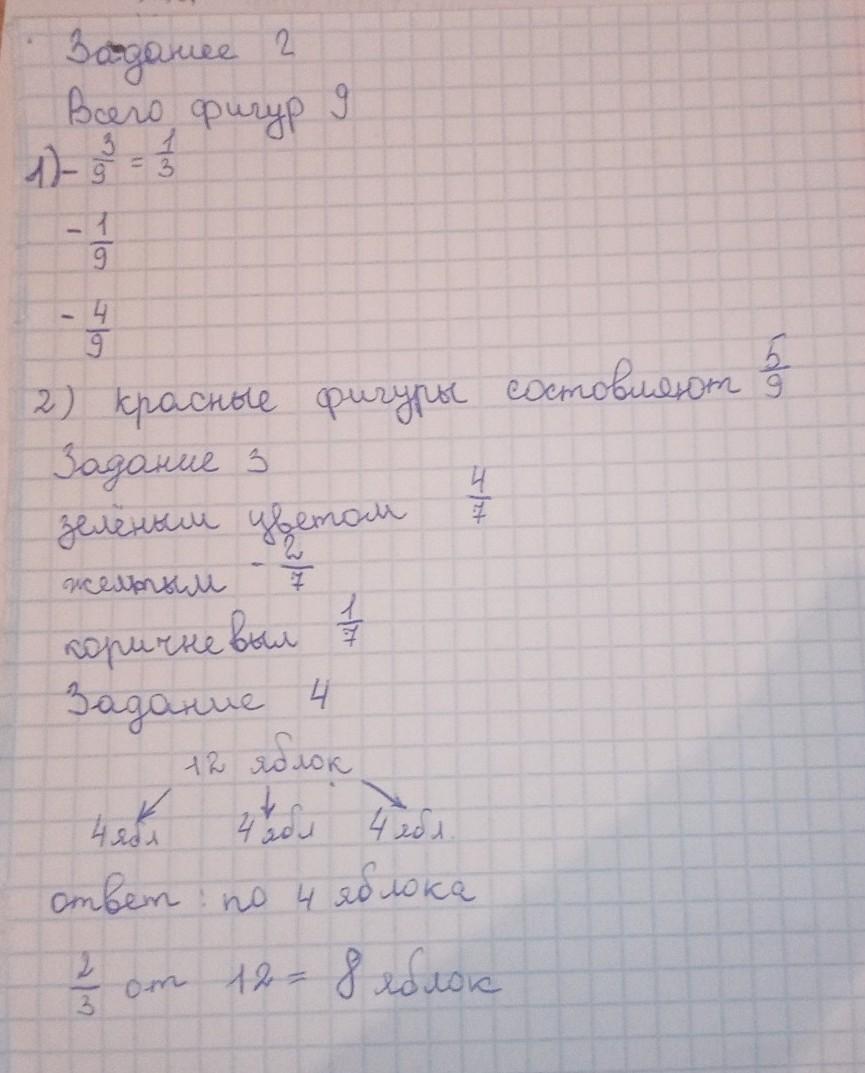 Задание 2
Всего фигур 9
1) - 3/9 = 1/3
- 1/9
- 4/9
2) красные фигуры состовляют 5/9
Задание 3
зелёным цветом 4/7
желтым - 2/7
коричневым 1/7
Задание 4
12 яблок
4 ябл 4 ябл 4 ябл.
ответ: по 4 яблока
2/3 от 12 = 8 яблок